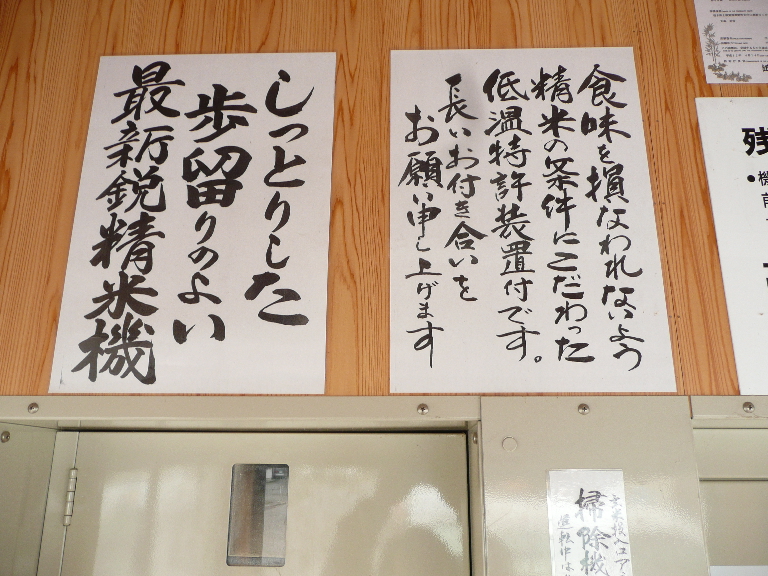 しっとりした
歩留りのよい
最新鋭精米機
食味を損なわれないよう
精米の条件にこだわった
低温特許装置付です。
長いお付き合いを
お願い申し上げます
残
掃除機
運転中は